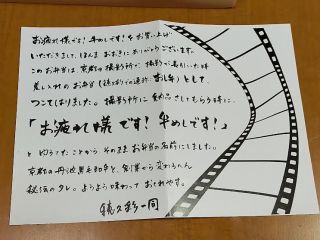 お疲れ様です！牛めしです！をお買い上げ
いただきまして、ほんま おおきにありがとうございます。
このお弁当は 京都の撮影所が 撮影が長引いた時
差し入れのお弁当
として、
つこてはりました。撮影所に 納品させてもらう時に、
「お疲れ様です！牛めしです！」
と 言うてたことから そのまま お弁当の名前にしました。
京都の丹波黒毛和牛と、創業から変わらへん
秘伝のタレ。ようよう味わって おくれやす。
一同